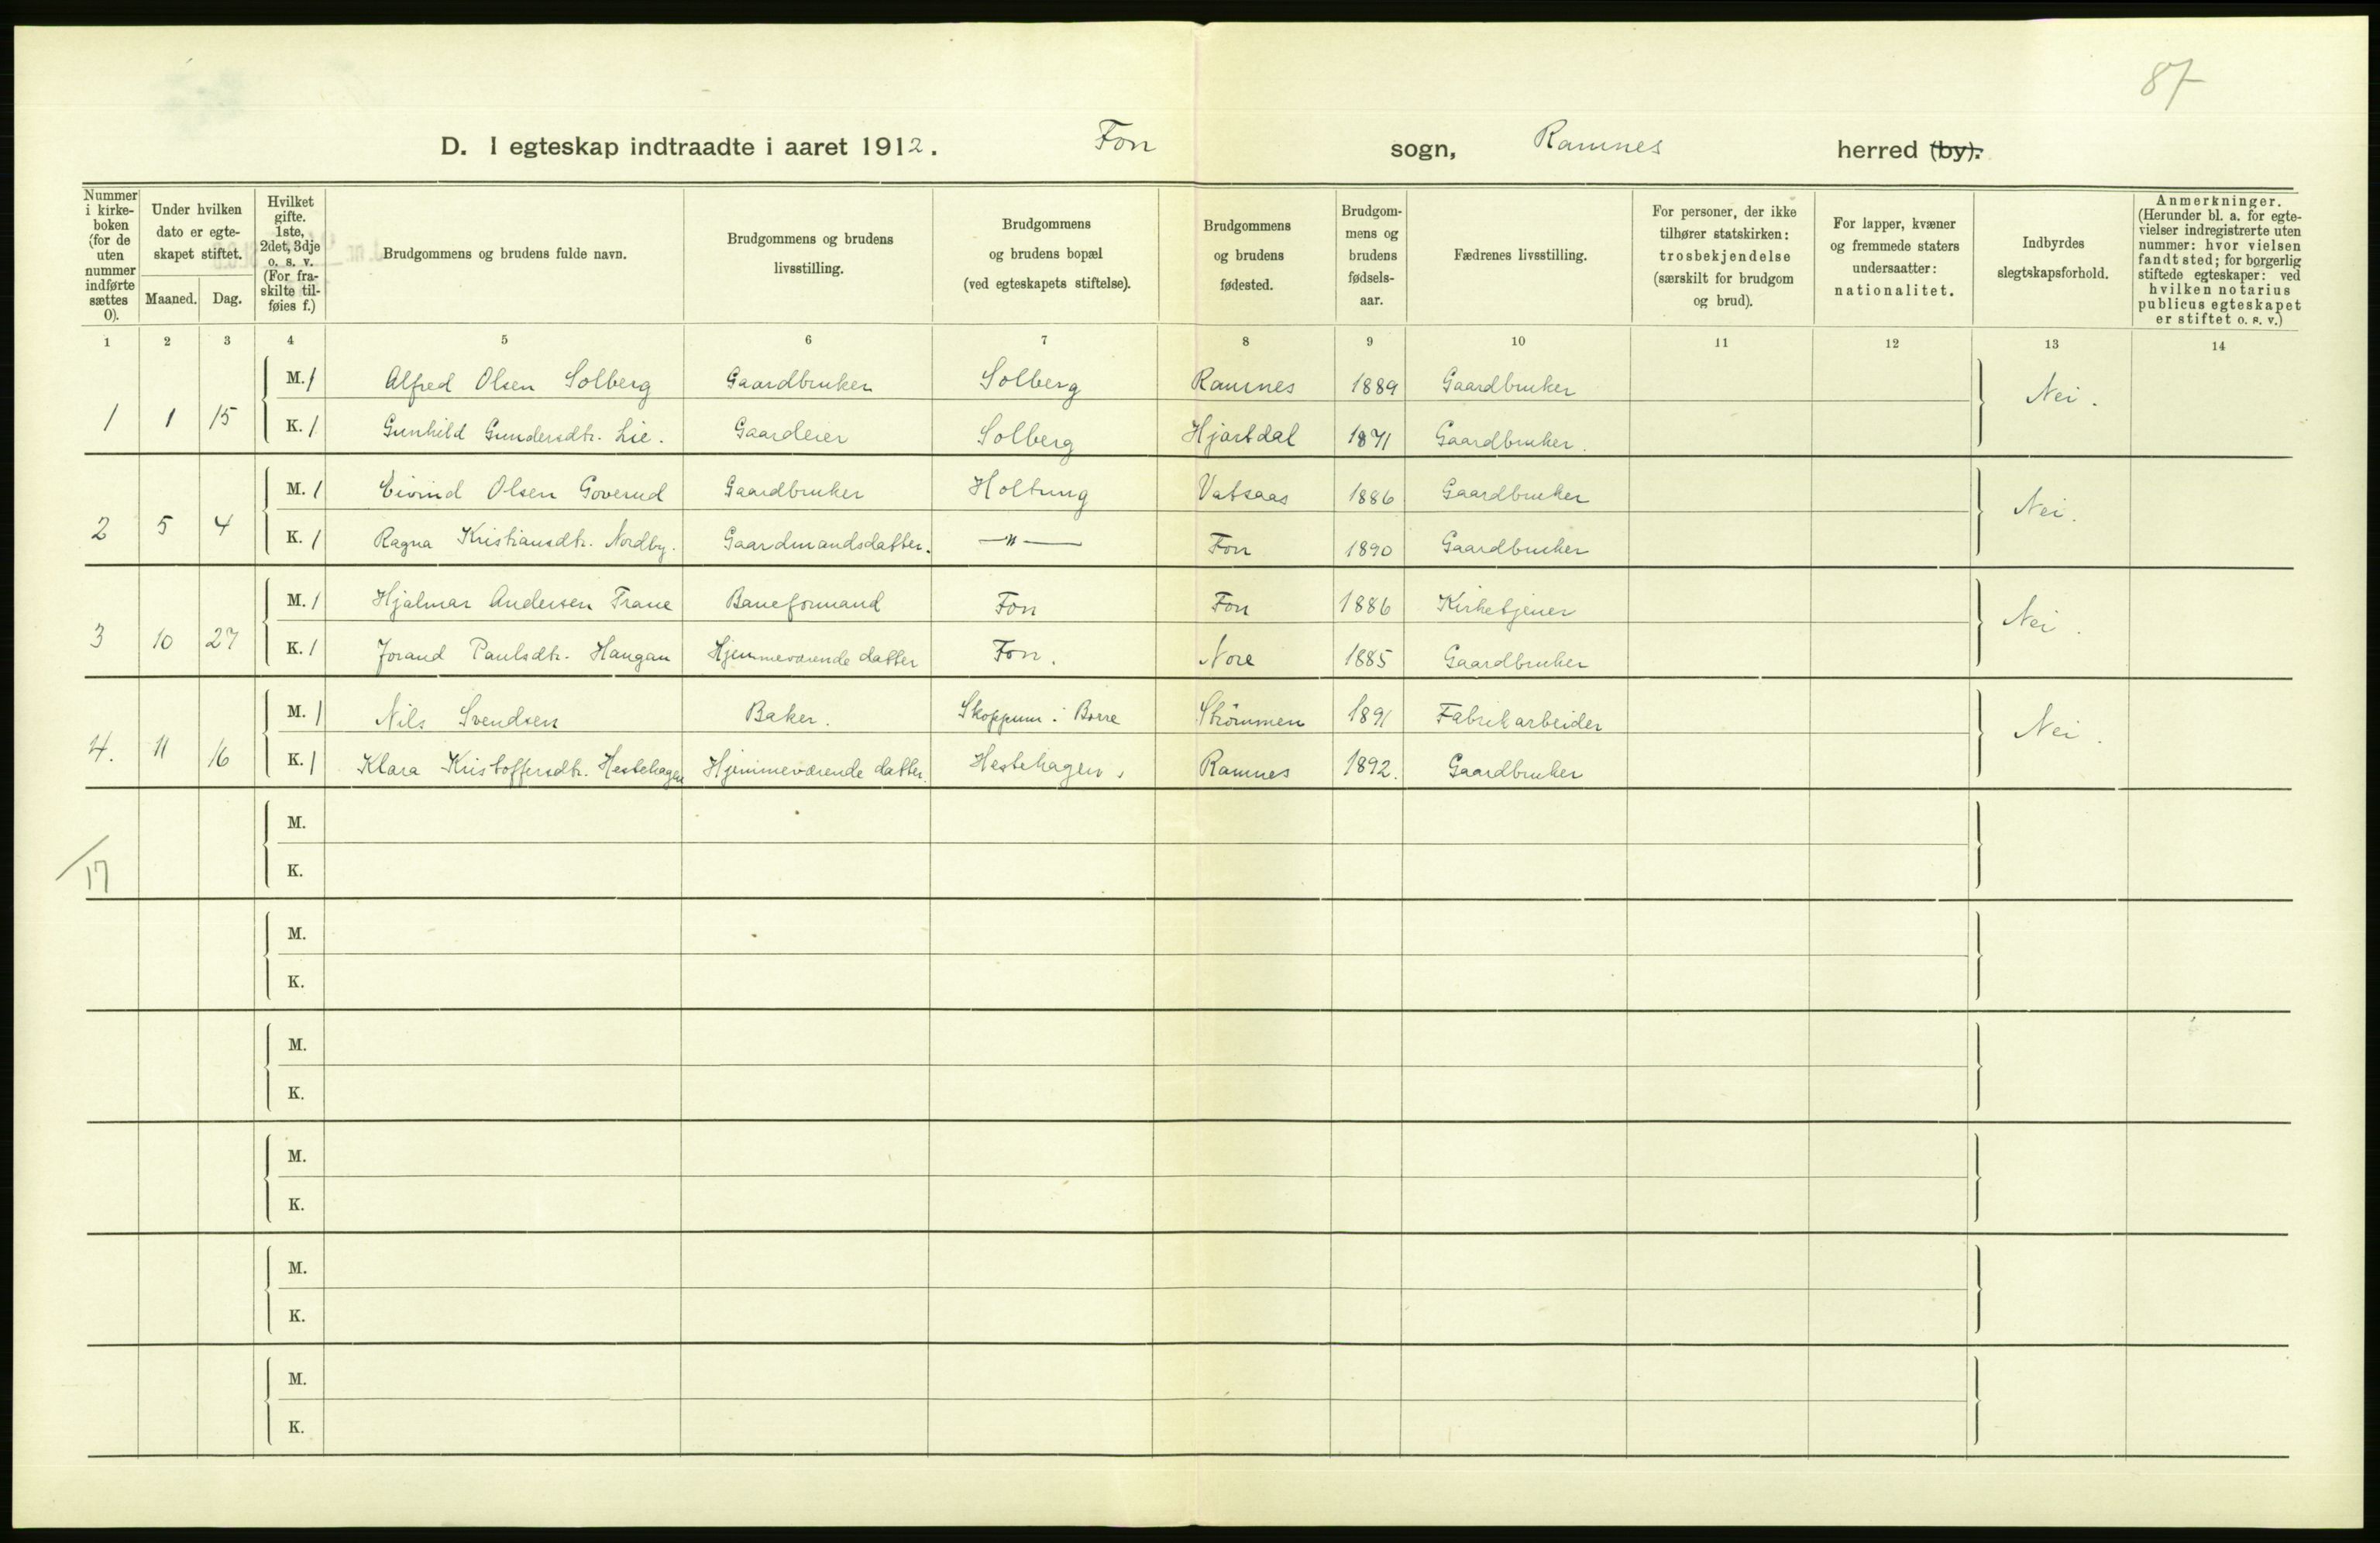 87
D. I egteskap indtraadte i aaret 1912. Fon sogn, Ramnes herred (by).
Nummer i kirke- boken (for de uten nummer indførte sættes 0).
Under hvilken dato er egte- skapet stiftet.
Maaned. Dag.
Hvilket gifte. 1ste, 2det, 3dje o. s. v. (For fra- skilte til- føies f.)
Brudgommens og brudens fulde navn.
Brudgommens og brudens livsstilling.
Brudgommens og brudens bopæl (ved egteskapets stiftelse).
Brudgommens og brudens fødested.
Brudgom- mens og brudens fødsels- aar.
Fædrenes livsstilling.
For personer, der ikke tilhører statskirken: trosbekjendelse (særskilt for brudgom og brud).
For lapper, kvæner og fremmede staters undersaatter: nationalitet.
Indbyrdes slegtskapsforhold.
Anmerkninger. (Herunder bl. a. for egte- vielser indregistrerte uten nummer: hvor vielsen fandt sted; for borgerlig stiftede egteskaper: ved hvilken notarius publicus egteskapet er stiftet o. s. v.)
1 2 3 4 5 6 7 8 9 10 11 12 13 14
M. 1 Alfred Olsen Solberg Gaardbruker Solberg Ramnes 1889 Gaardbruker Nei.
1 1 15 K. 1 Gunhild Gundersdtr. Lie. Gaardeier Solberg Hjartdal 1871 Gaardbruker.
M. 1 Eivind Olsen Goverud Gaardbruker Holtung Vatsaas 1886 Gaardbruker Nei.
2 5 4 K. 1 Ragna Kristiansdtr. Nordby. Gaardmandsdatter. —"— Fon 1890 Gaardbruker
M. 1 Hjalmar Andersen Trane Baneformand Fon Fon 1886 Kirketjener Nei.
3 10 27 K. 1 Jorand Paulsdtr. Haugan Hjemmeværende datter Fon. Nore 1885 Gaardbruker
M. 1 Nils Svendsen Baker. Skoppum i Borre Strömmen 1891 Fabrikarbeider Nei.
4. 11 16 K. 1 Klara Kristoffersdtr. Hestehagen Hjemmeværende datter. Hestehagen, Ramnes 1892. Gaardbruker
M.
17 K.
M.
K.
M.
K.
M.
K.
M.
K.
M.
K.